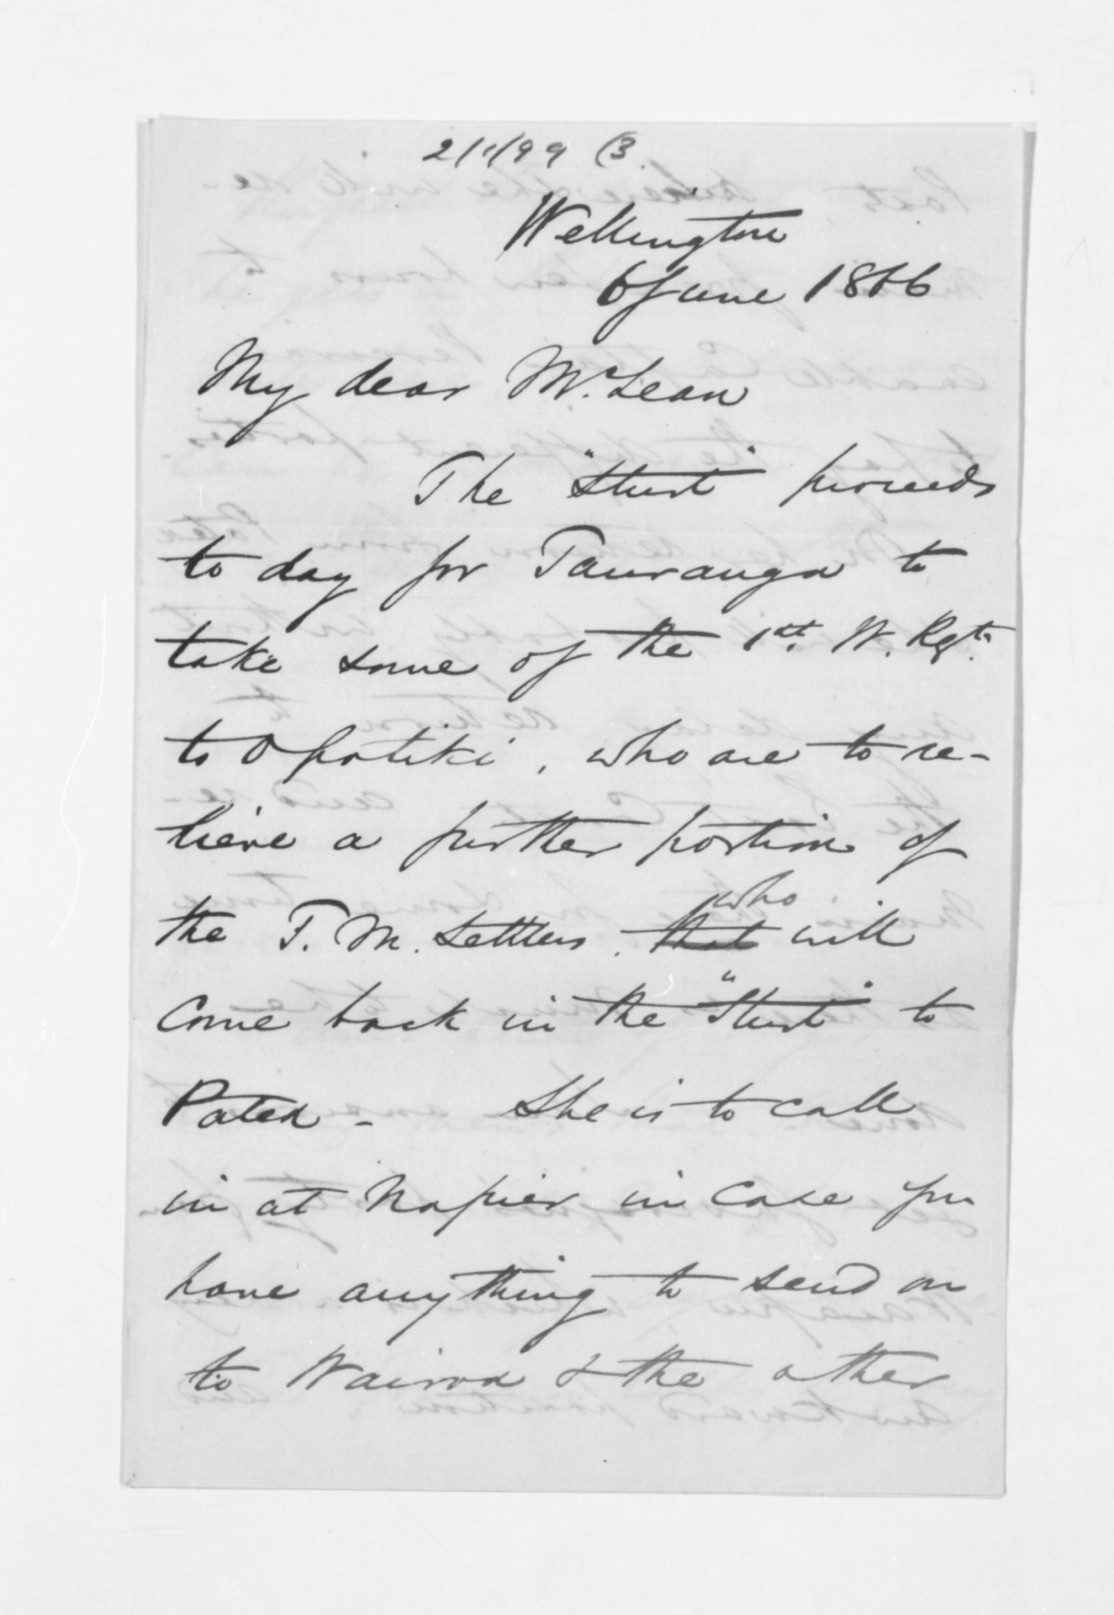 2/1/99 (3.
Wellington
6 June 1866
My dear McLean
The "Sturt" proceeds
to day for Tauranga to
take some of the 1st. W. Rgt.
to Opotiki, who are to re-
lieve a further portion of
the T. M. Settlers. that who will
come back in the "Sturt" to
Patea - She is to call
in at Napier in case you
have anything to send on
to Wairoa & the other